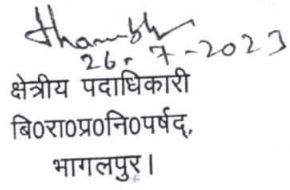 26.7-2023
क्षेत्रीय पदाधिकारी
बि0रा0प्र0नि0पर्षद्,
भागलपुर।